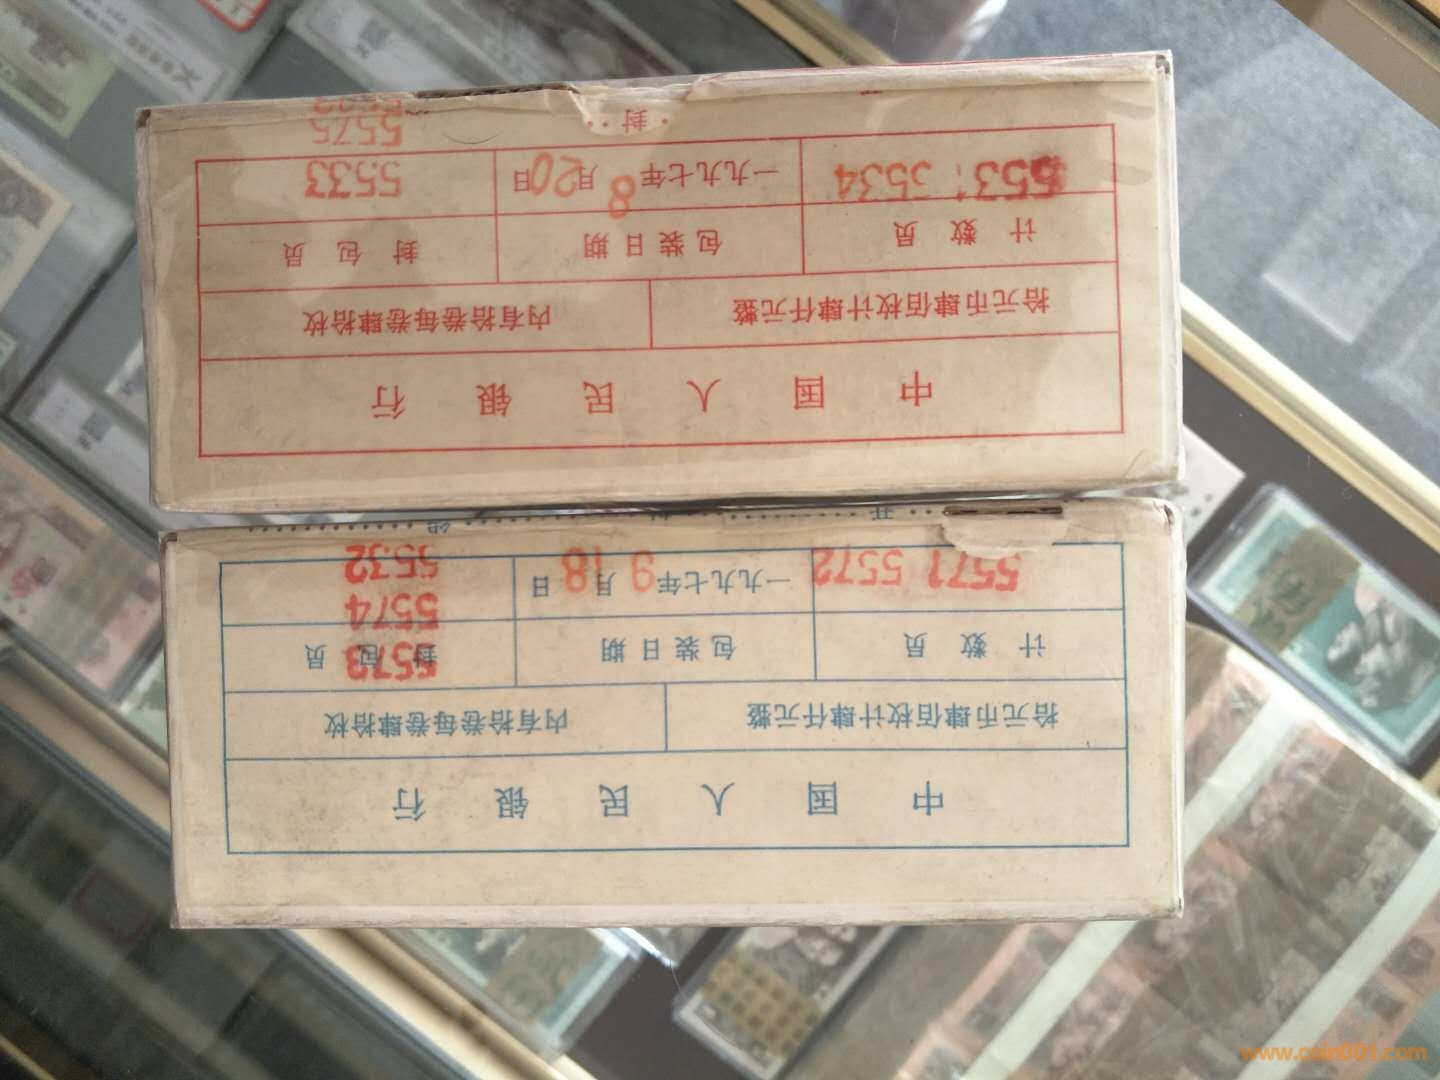 中国人民银行
拾元币肆佰枚计肆仟元整 内有拾卷每卷肆拾枚
计数员 包装日期 封包员
5573
5574
5571 5572 一九九七年9月18日 5532
开 封 线
中国人民银行
拾元币肆佰枚计肆仟元整 内有拾卷每卷肆拾枚
计数员 包装日期 封包员
5534 一九九七年8月20日 5533
5575
封
www.coin001.com